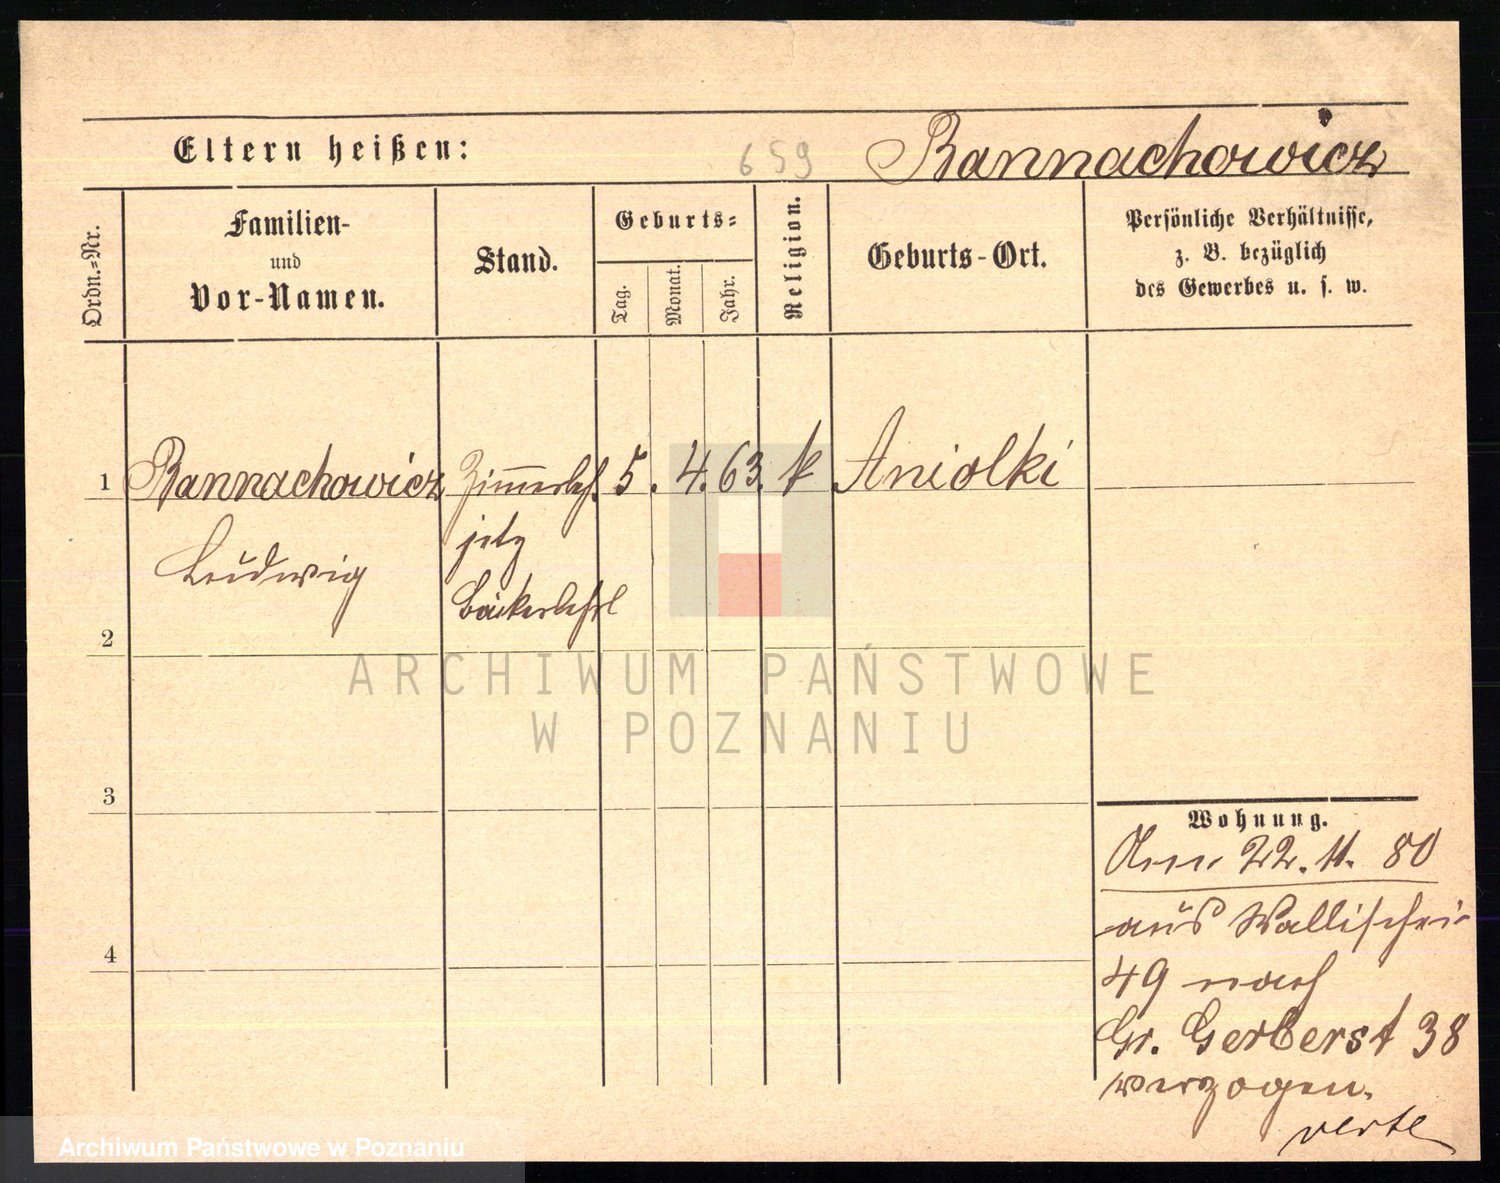 Eltern heißen:
659
Bannachowicz
Ordn.-Nr.
Familien-
und
Vor-Namen.
Stand.
Geburts-
Tag.
Monat.
Jahr.
Religion.
Geburts-Ort.
Persönliche Verhältnisse,
z. B. bezüglich
des Gewerbes u. s. w.
1 Bannachowicz Zimmerlehl. 5. 4. 63. k Aniolki
Ludwig
jetz
Bäckerlehrl
2
3
4
Wohnung.
Am 22. 11. 80
aus Wallischei
49 nach
Gr. Gerberst 38
verzogen.
verte
ARCHIWUM PAŃSTWOWE
W POZNANIU
Archiwum Państwowe w Poznaniu